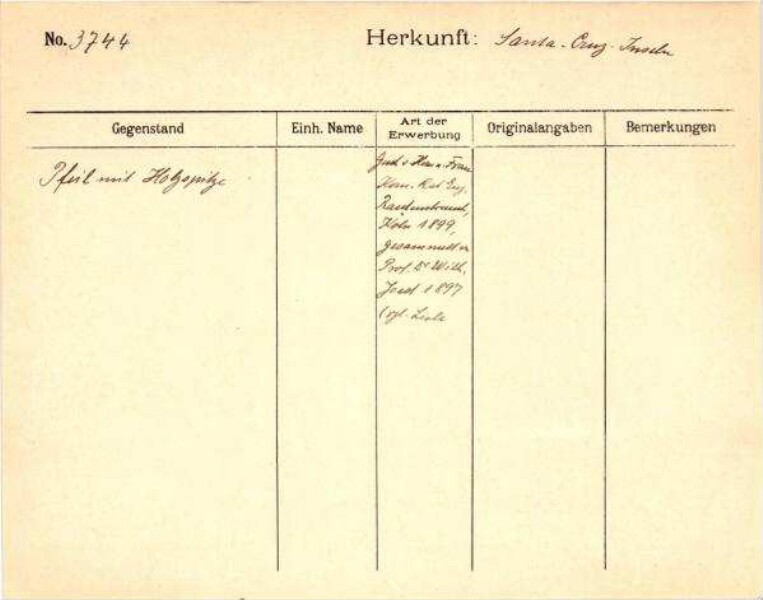 No. 3744
Herkunft: Santa-Cruz-Inseln
Gegenstand
Einh. Name
Art der
Erwerbung
Originalangaben
Bemerkungen
Pfeil mit Holzspitze
Gesch. v. Herrn u. Frau
Kom. Rat Eug.
Rautenstrauch,
Köln 1899,
gesammelt v.
Prof. Dr Wilh.
Joest 1897
(vgl. Liste